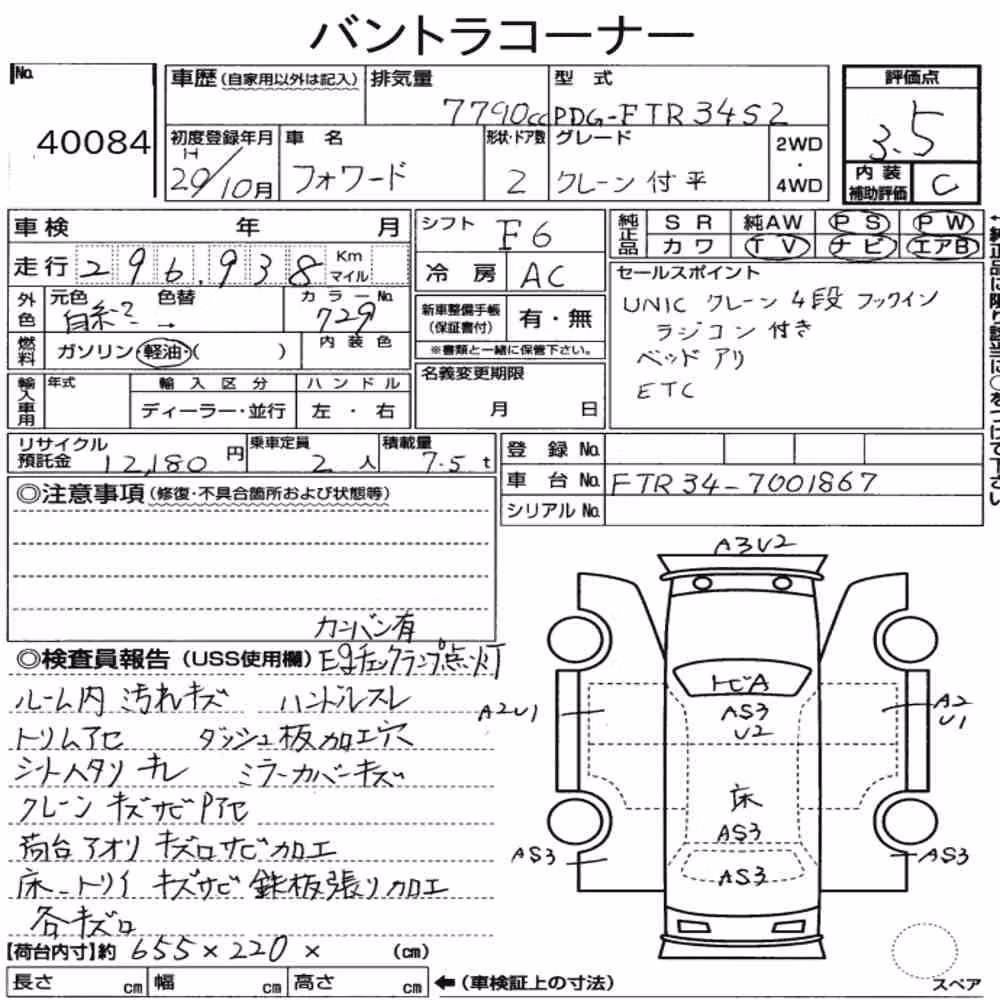 バントラコーナー
No. 40084
車歴(自家用以外は記入) 排気量 7790cc 型式 PDG-FTR34S2
初度登録年月 H20/10月 車名 フォワード 形状・ドア数 2 グレード クレーン付平 2WD・4WD
評価点 3.5
内装補助評価 C
車検 年 月
走行 296,938 Km マイル
シフト F6
冷房 AC
純正品 SR 純AW PS PW
カワ TV ナビ エアB
外色 元色 白系2 → 色替 カラーNo. 729
燃料 ガソリン・軽油・( ) 内装色
新車整備手帳(保証書付) 有・無
※書類と一緒に保管下さい。
セールスポイント
UNIC クレーン 4段 フックイン
ラジコン付き
ベッドアリ
ETC
輸入車用 年式 輸入区分 ハンドル
ディーラー・並行 左・右
名義変更期限
月 日
リサイクル預託金 12,180円 乗車定員 2人 積載量 7.5t
登録No.
車台No. FTR34-7001867
シリアルNo.
◎注意事項(修復・不具合箇所および状態等)
カンバン有
◎検査員報告(USS使用欄) Egチェックランプ点灯
ルーム内 汚れキズ ハンドルスレ
トリムアセ ダッシュ板加工穴
シートヘタリ キレ ミラーカバーキズ
クレーン キズサビPアセ
荷台アオリ キズロサビ加工
床-トリイ キズサビ 鉄板張り加工
各キズロ
【荷台内寸】約 655×220× (cm)
長さ cm 幅 cm 高さ cm ←(車検証上の寸法)
A3U2
トビA
AS3
U2
A2U1
A2
U1
床
AS3
AS3
AS3
AS3
スペア